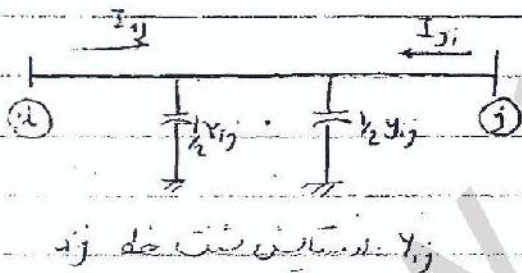 I_ij I_ji
i ½ Y_ij ½ y_ij j
Y_ij ادمیتانس شنت خط ij